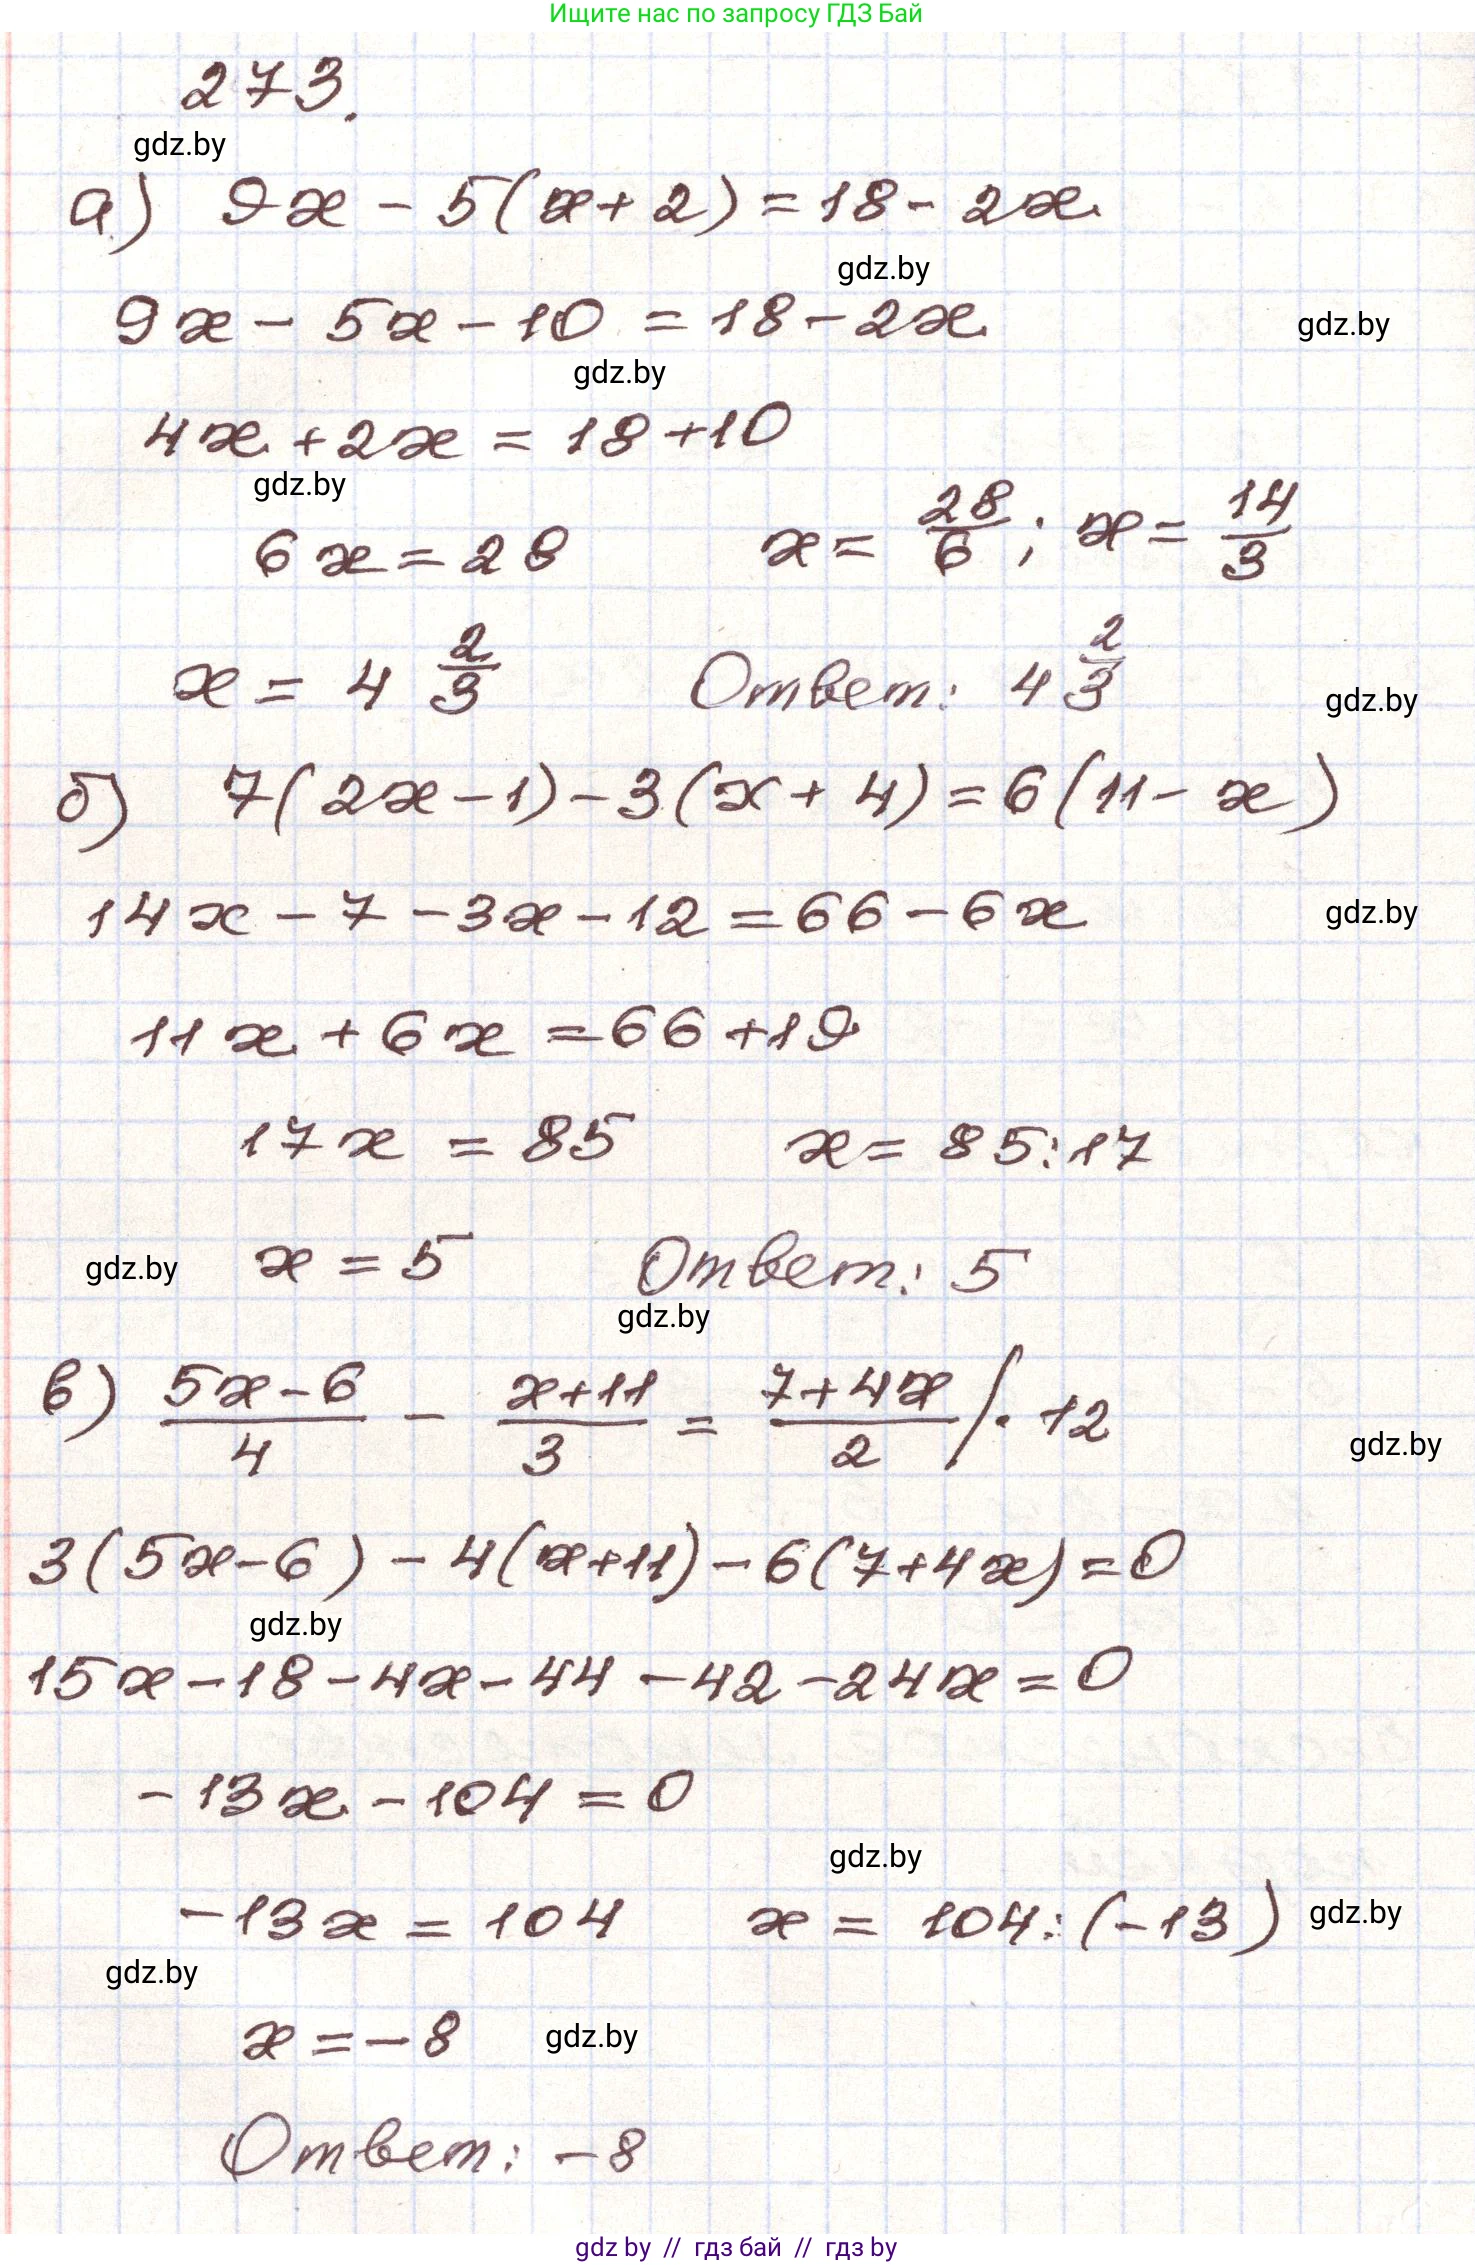 Ищите нас по запросу ГДЗ Бай
273.
gdz.by
а) 9x - 5(x + 2) = 18 - 2x
gdz.by
9x - 5x - 10 = 18 - 2x
gdz.by
gdz.by
4x + 2x = 18 + 10
gdz.by
6x = 28 x = 28/6; x = 14/3
x = 4 2/3 Ответ: 4 2/3
gdz.by
б) 7(2x - 1) - 3(x + 4) = 6(11 - x)
14x - 7 - 3x - 12 = 66 - 6x
gdz.by
11x + 6x = 66 + 19
17x = 85 x = 85:17
gdz.by
x = 5 Ответ: 5
gdz.by
в) (5x - 6)/4 - (x + 11)/3 = (7 + 4x)/2 | · 12
gdz.by
3(5x - 6) - 4(x + 11) - 6(7 + 4x) = 0
gdz.by
15x - 18 - 4x - 44 - 42 - 24x = 0
-13x - 104 = 0
gdz.by
-13x = 104 x = 104:(-13)
gdz.by
gdz.by
x = -8
gdz.by
Ответ: -8
gdz by // гдз бай // гдз by